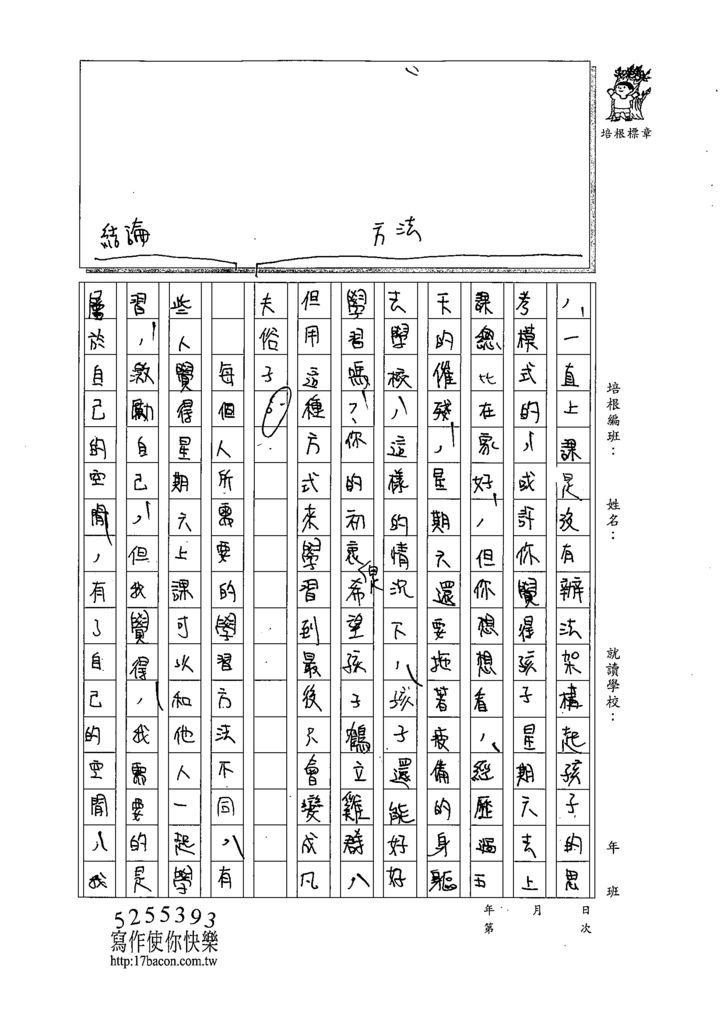 培根標章
方法
結論
，一直上課是沒有辦法架構起孩子的思
考模式的，或許你覺得孩子星期六去上
課總比在家好，但你想想看，經歷過五
天的催殘，星期六還要拖著疲備的身軀
去學校，這樣的情況下，孩子還能好好
學習嗎？你的初衷是希望孩子鶴立雞群，
但用這種方式來學習到最後只會變成凡
夫俗子的
每個人所需要的學習方法不同，有
些人覺得星期六上課可以和他人一起學
習，激勵自己，但我覺得，我需要的是
屬於自己的空間，有了自己的空間，我
培根編班：
姓名：
就讀學校：
年 班
年 月 日
第 次
5255393
寫作使你快樂
http:17bacon.com.tw